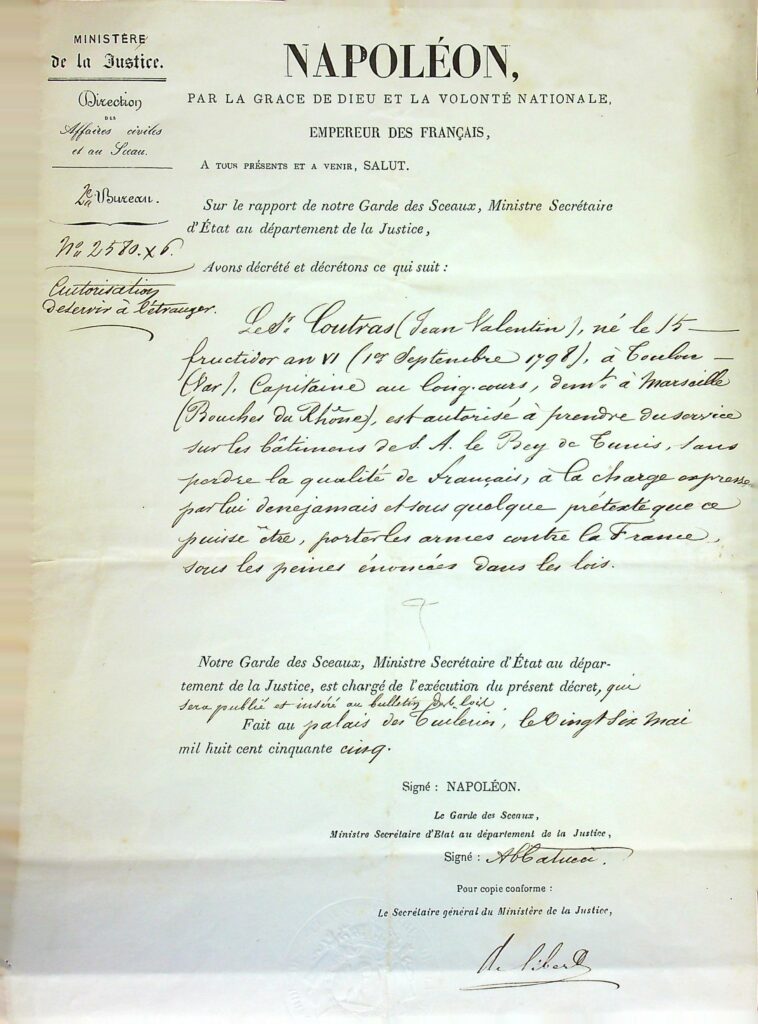 MINISTÈRE
de la Justice.
Direction
DES
Affaires civiles
et du Sceau.
2e Bureau.
No 2580. X 6.
Autorisation
de servir à l'étranger.
NAPOLÉON,
PAR LA GRACE DE DIEU ET LA VOLONTÉ NATIONALE,
EMPEREUR DES FRANÇAIS,
A TOUS PRÉSENTS ET A VENIR, SALUT.
Sur le rapport de notre Garde des Sceaux, Ministre Secrétaire
d'État au département de la Justice,
Avons décrété et décrétons ce qui suit :
Le Sr. Coutras (Jean Valentin), né le 15
fructidor an VI (1er Septembre 1798), à Toulon
(Var), Capitaine au long-cours, demt à Marseille
(Bouches du Rhône), est autorisé à prendre du service
sur les bâtimens de S. A. le Bey de Tunis, sans
perdre la qualité de français, à la charge expresse
par lui de ne jamais et sous quelque prétexte que ce
puisse être, porter les armes contre la France,
sous les peines énoncées dans les lois.
Notre Garde des Sceaux, Ministre Secrétaire d'État au dépar-
tement de la Justice, est chargé de l'exécution du présent décret, qui
sera publié et inséré au bulletin des lois
Fait au palais des Tuileries, le Vingt Six Mai
mil huit cent cinquante cinq.
Signé : NAPOLÉON.
Le Garde des Sceaux,
Ministre Secrétaire d'Etat au département de la Justice,
Signé : Abbatucci.
Pour copie conforme :
Le Secrétaire général du Ministère de la Justice,